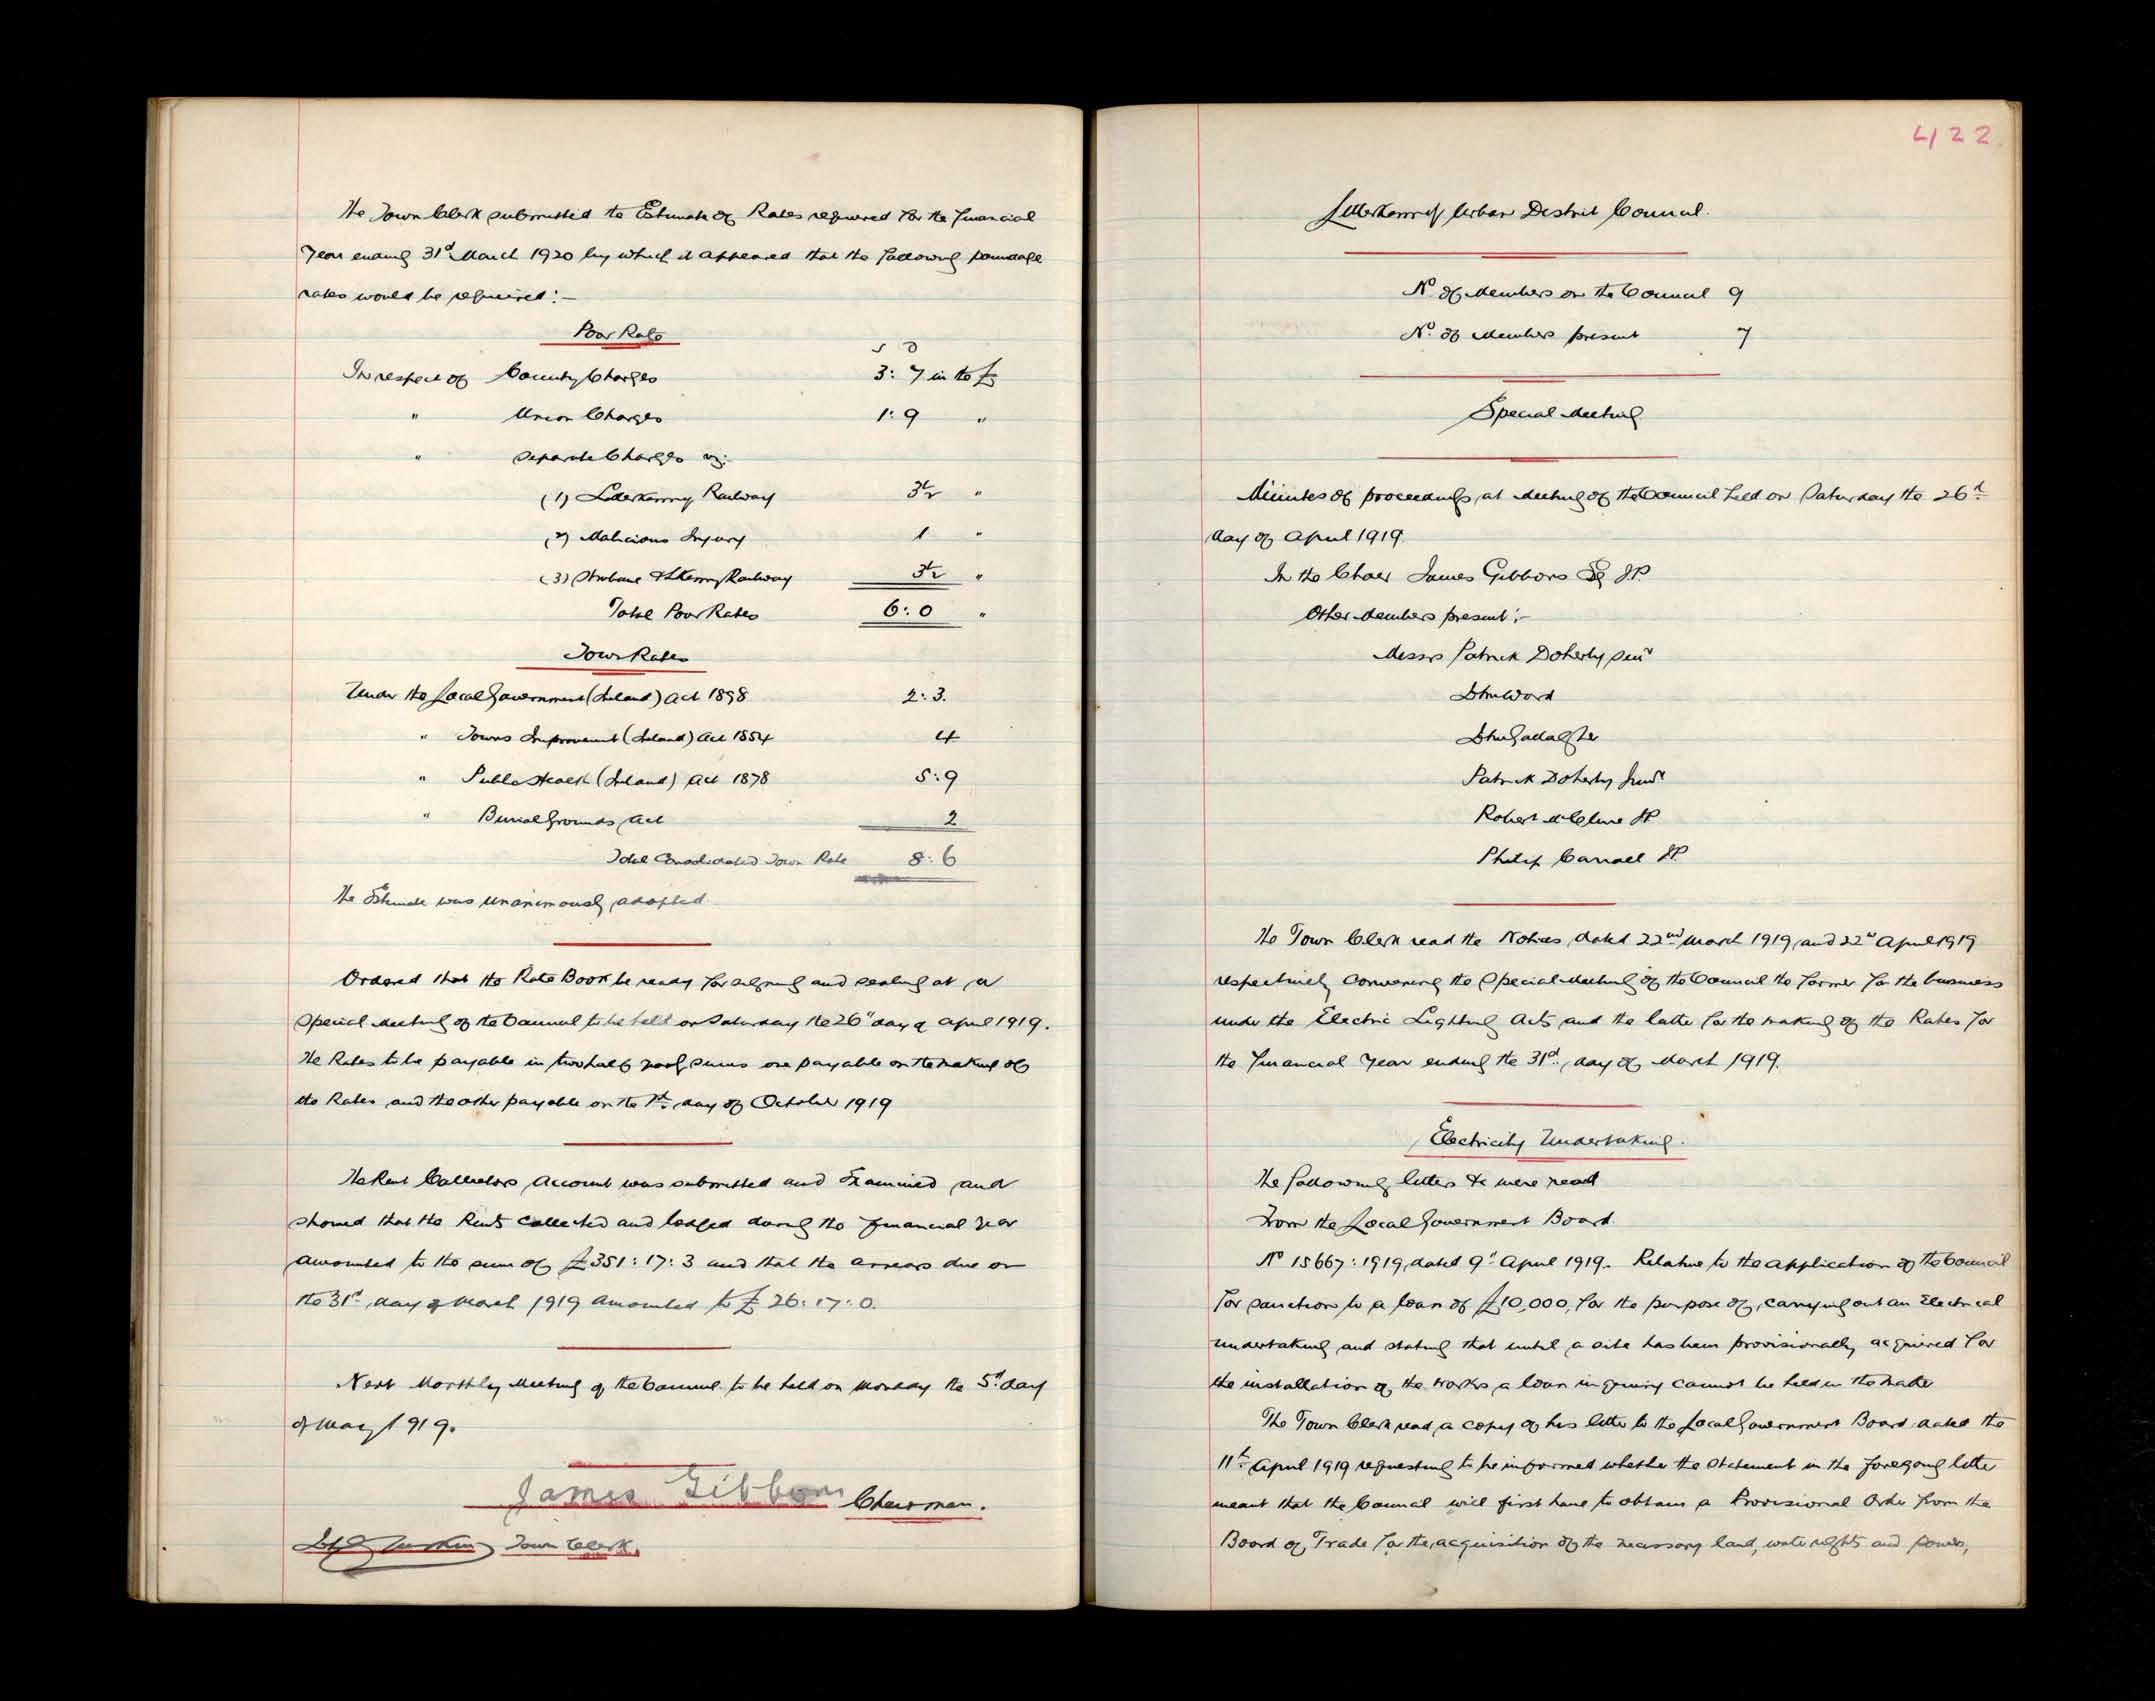 The Town Clerk submitted the Estimate of Rates required for the financial
Year ending 31st March 1920 by which it appeared that the following poundage
rates would be required:—
Poor Rate
s d
In respect of County Charges 3: 7 in the £
" Union Charges 1: 9 "
" Separate Charges viz:
(1) Letterkenny Railway 3½ "
(2) Malicious Injury 1 "
(3) Strabane & LKenny Railway 3½ "
Total Poor Rates 6: 0 "
Town Rates
Under the Local Government (Ireland) Act 1898 2: 3.
" Towns Improvement (Ireland) Act 1854 4
" Public Health (Ireland) Act 1878 5: 9
" Burial Grounds Act 2
Total Consolidated Town Rate 8: 6
The Estimate was unanimously adopted.
Ordered that the Rate Book be ready for signing and sealing at a
Special Meeting of the Council to be held on Saturday the 26th day of April 1919.
The Rates to be payable in two half yearly sums one payable on the making of
the Rates and the other payable on the 1st day of October 1919
The Rent Collectors Account was submitted and Examined and
showed that the Rents collected and lodged during the financial year
amounted to the sum of £351: 17: 3 and that the arrears due on
the 31st day of March 1919 amounted to £ 26: 17: 0.
Next Monthly Meeting of the Council to be held on Monday the 5th day
of May 1919.
James Gibbons Chairman.
Town Clerk.
422.
Letterkenny Urban District Council.
No. of Members on the Council 9
No. of Members present 7
Special Meeting
Minutes of proceedings at Meeting of the Council held on Saturday the 26th
day of April 1919.
In the Chair James Gibbons Esq J.P.
Other Members present:—
Messrs Patrick Doherty Senr
John Ward
John Gallagher
Patrick Doherty Junr
Robert McClure JP
Philip Carroll JP.
The Town Clerk read the Notices dated 22nd March 1919 and 22nd April 1919
respectively convening the Special Meeting of the Council the former for the business
under the Electric Lighting Acts and the latter for the making of the Rates for
the financial Year ending the 31st day of March 1919.
Electricity Undertaking.
The following letters &c were read
From the Local Government Board.
No 15667: 1919 dated 9th April 1919. Relative to the application of the Council
for sanction to a loan of £10,000, for the purpose of carrying out an Electrical
undertaking and stating that until a site has been provisionally acquired for
the installation of the works a loan inquiry cannot be held in the matter
The Town Clerk read a copy of his letter to the Local Government Board dated the
11th April 1919 requesting to be informed whether the statement in the foregoing letter
meant that the Council will first have to obtain a Provisional Order from the
Board of Trade for the acquisition of the necessary land, water rights and powers,